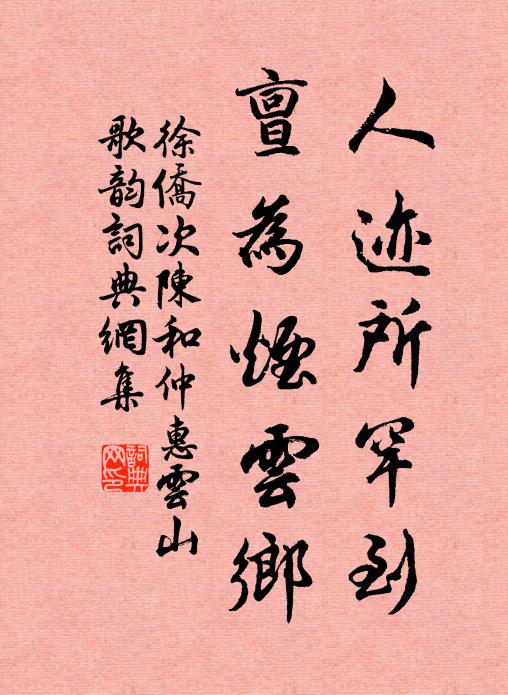 人迹所罕到
亶為煙雲鄉
徐僑次陳和仲惠雲山
歌韵詞典網集
詞典网印